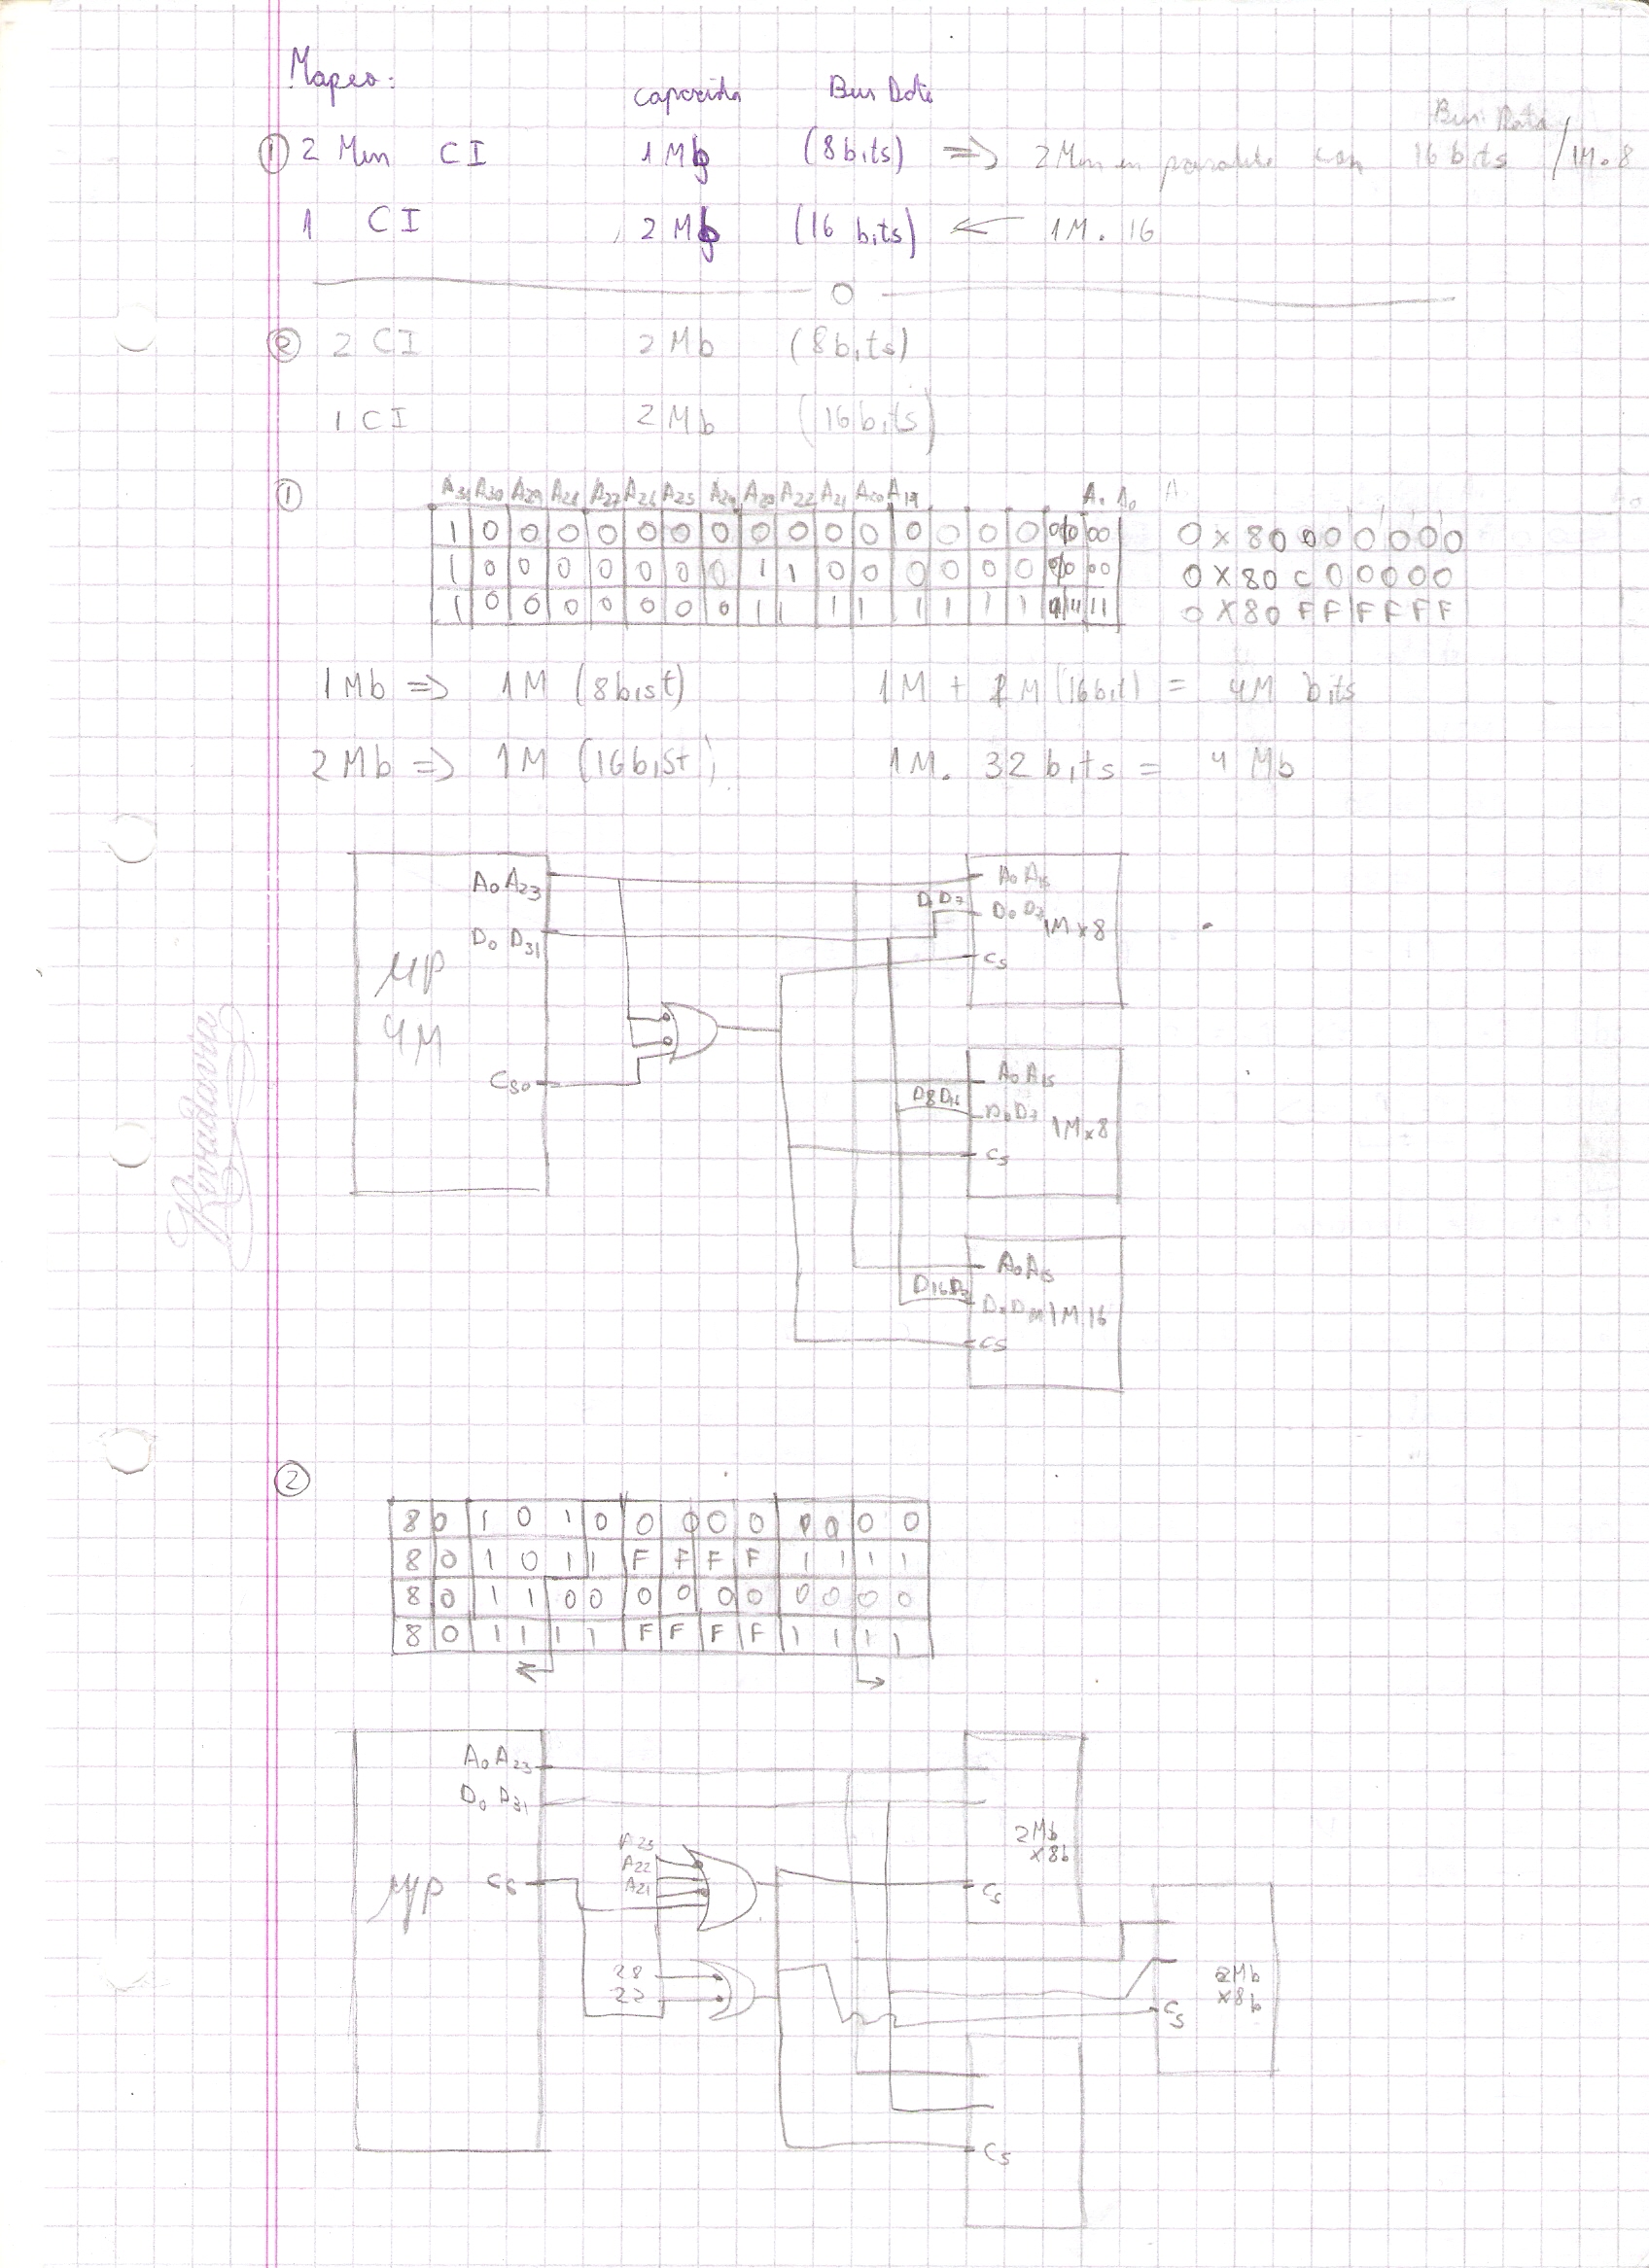 Mapeo:
capacida Bus Dato
① 2 Mem CI 1 Mb (8 bits) => 2 Mem en paralelo con 16 bits / 1M.8
Bus Data
1 CI 2 Mb (16 bits) ← 1M.16
② 2 CI 2 Mb (8 bits)
1 CI 2 Mb (16 bits)
①
A31 A30 A29 A28 A27 A26 A25 A24 A23 A22 A21 A20 A19 A1 A0 A
1 0 0 0 0 0 0 0 0 0 0 0 0 0 0 0 00 00 0x80000000
1 0 0 0 0 0 0 0 1 1 0 0 0 0 0 0 00 00 0x80C00000
1 0 0 0 0 0 0 0 1 1 1 1 1 1 1 1 11 11 0x80FFFFFF
1 Mb => 1M (8 bist) 1M + 1M (16 bit) = 4M bits
2 Mb => 1M (16 bist) 1M. 32 bits = 4 Mb
A0 A23
D0 D31
μP
4M
CS0
D0 D7
A0 A15
D0 D7
1M x 8
CS
A0 A15
D8 D16
D0 D7
1M x 8
CS
A0 A15
D16 D31
1M.16
CS
Rivadavia
②
8 0 1 0 1 0 0 0 0 0 0 0 0 0
8 0 1 0 1 1 F F F F 1 1 1 1
8 0 1 1 0 0 0 0 0 0 0 0 0 0
8 0 1 1 1 1 F F F F 1 1 1 1
A0 A23
D0 D31
μP
CS
A23
A22
A21
28
22
2Mb
x8b
CS
2Mb
x8b
CS
CS